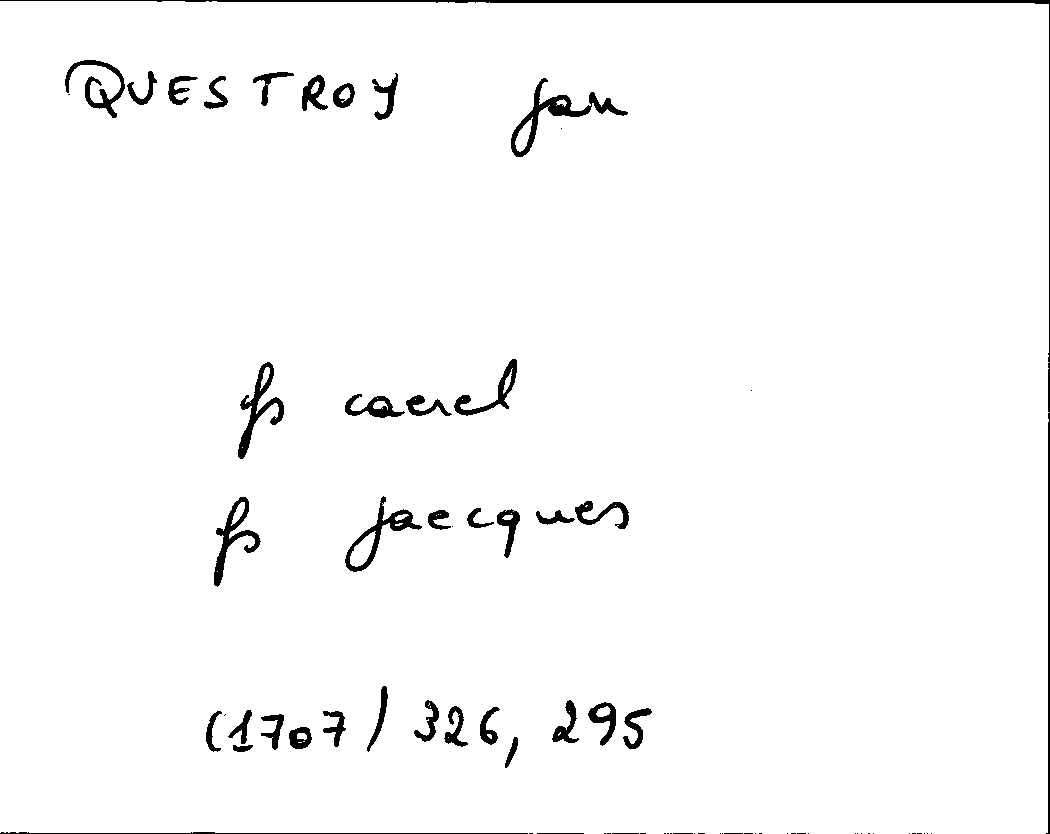 QUESTROY Jan
fs caerel
fs Jaecques
(1707) 326, 295